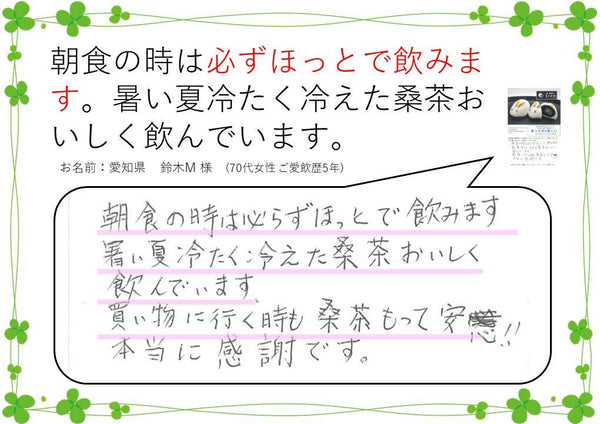 朝食の時は必ずほっとで飲みま
す。暑い夏冷たく冷えた桑茶お
いしく飲んでいます。
お名前：愛知県 鈴木M 様 (70代女性 ご愛飲歴5年)
朝食の時は必らずほっとで飲みます
暑い夏冷たく冷えた桑茶おいしく
飲んでいます
買い物に行く時も桑茶もって安
!!
本当に感謝です。